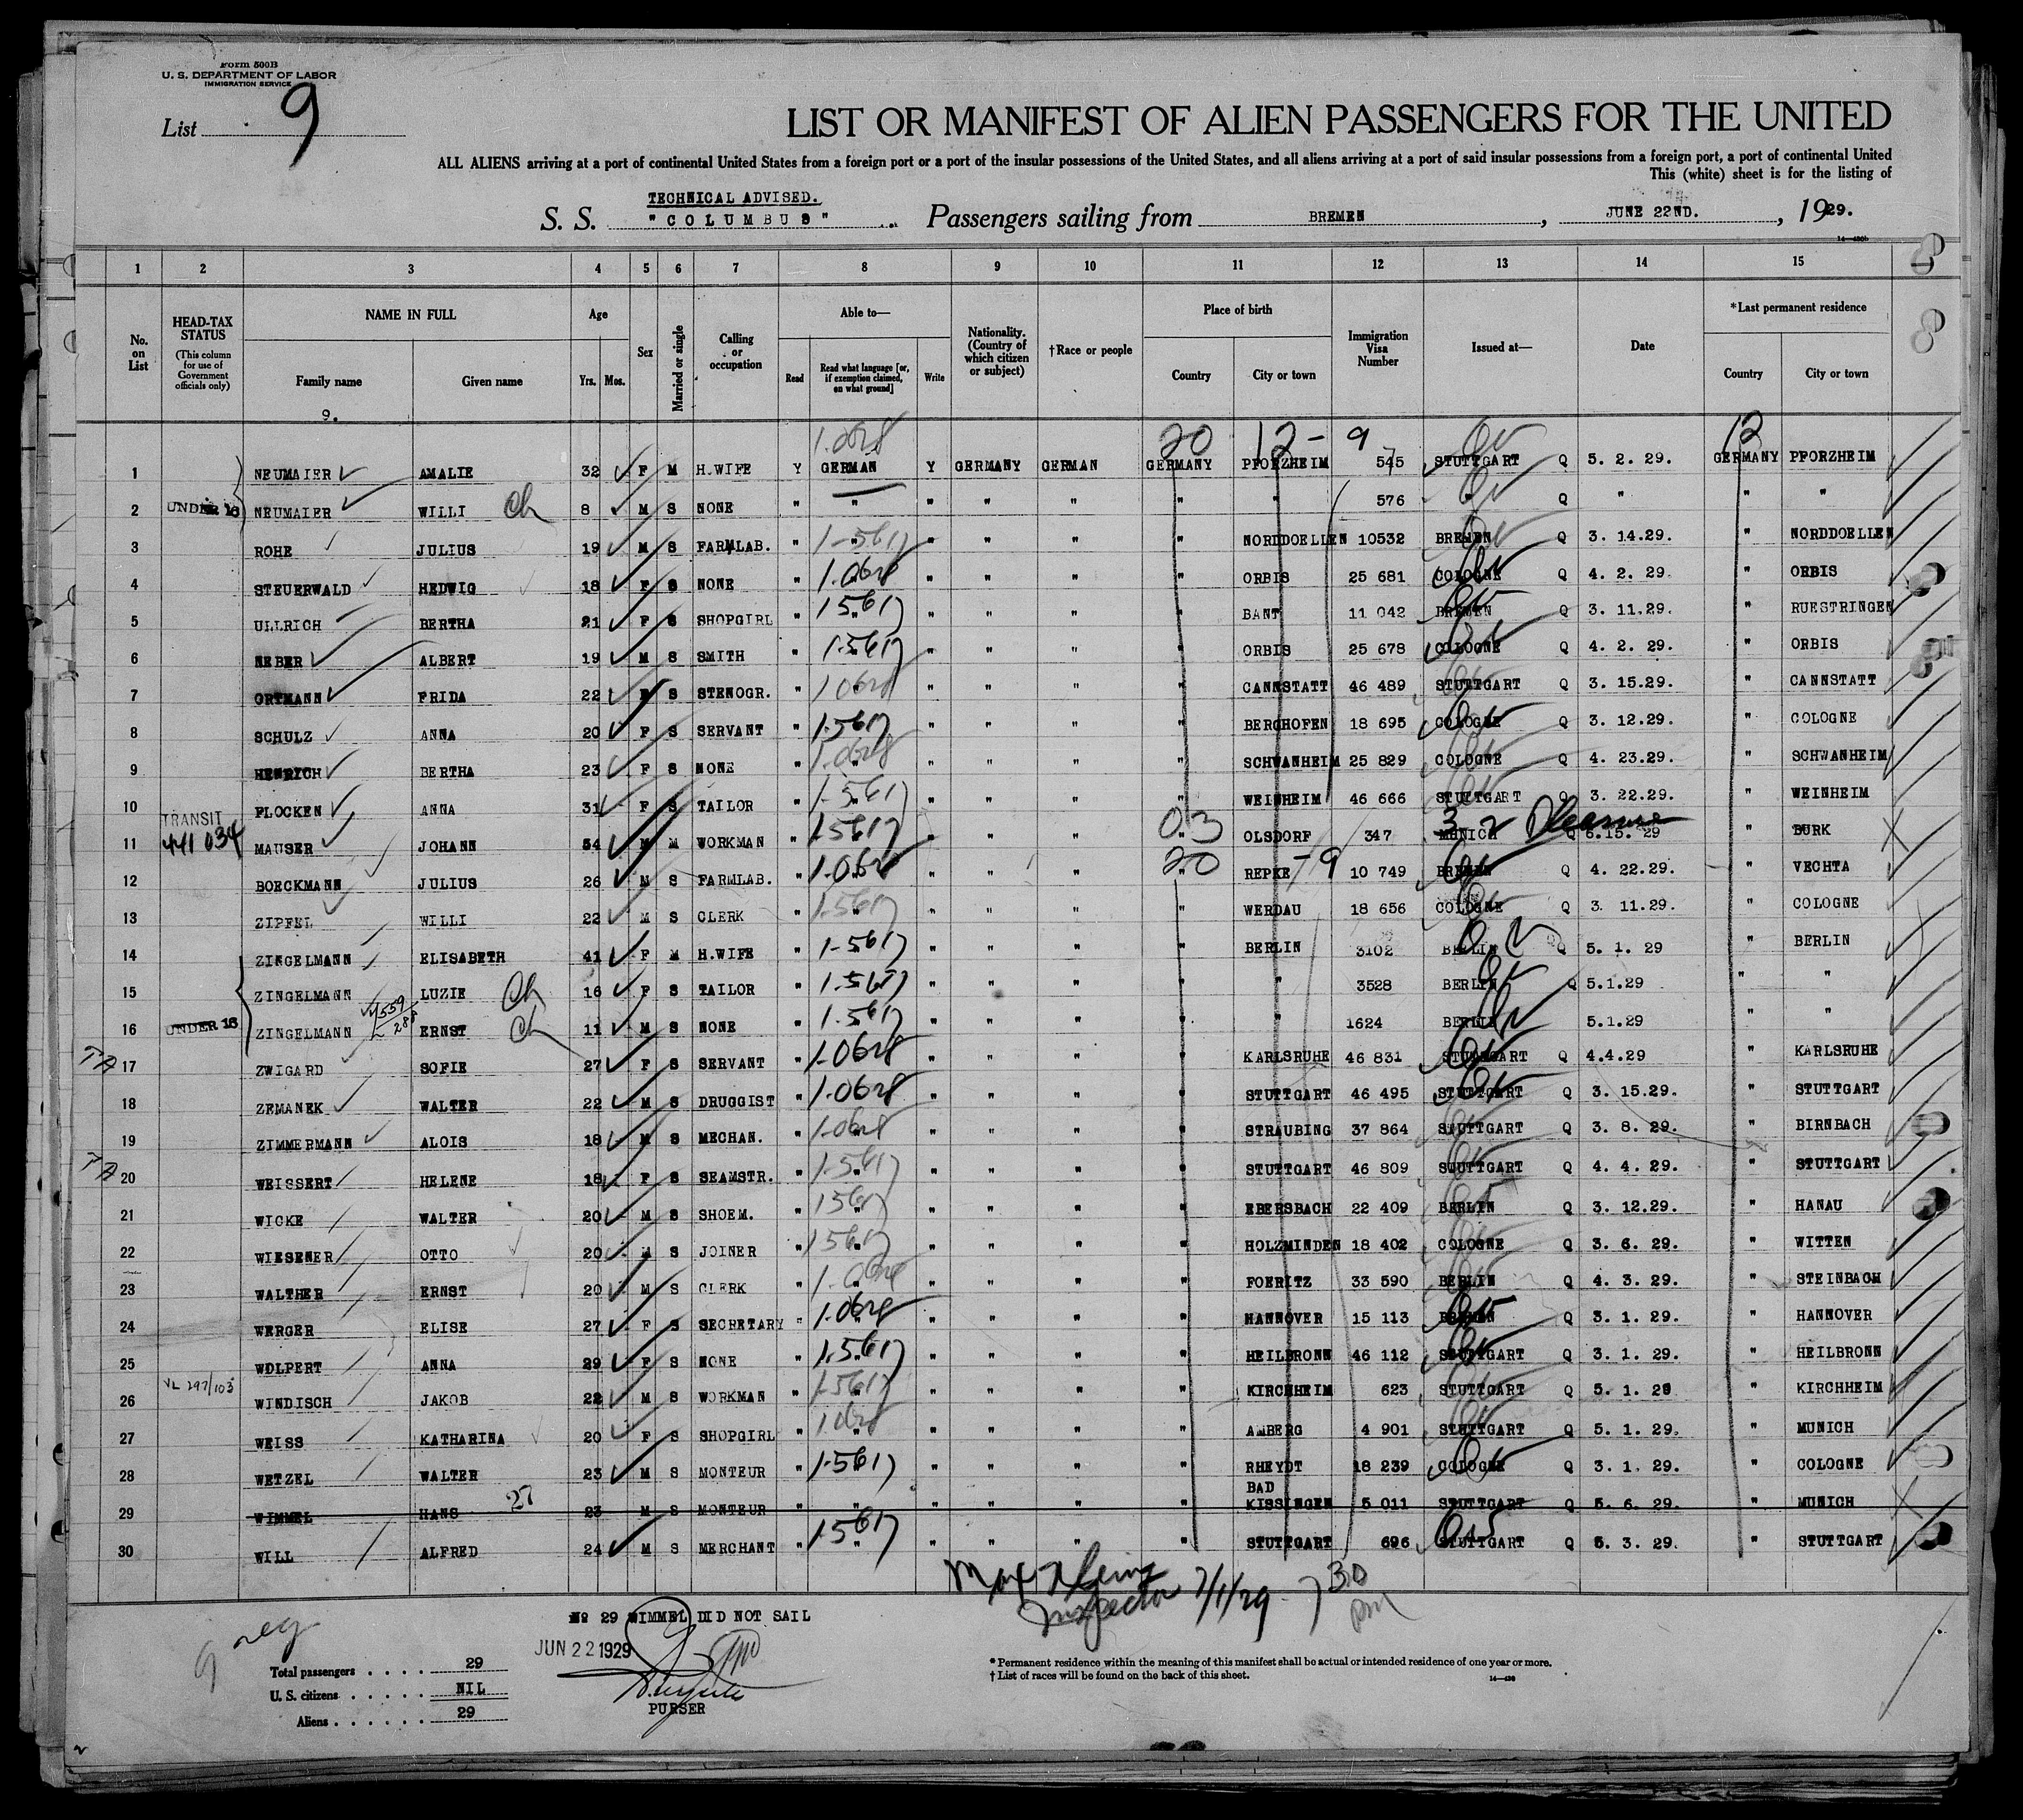 Form 500B
U. S. DEPARTMENT OF LABOR
IMMIGRATION SERVICE
List 9
LIST OR MANIFEST OF ALIEN PASSENGERS FOR THE UNITED
ALL ALIENS arriving at a port of continental United States from a foreign port or a port of the insular possessions of the United States, and all aliens arriving at a port of said insular possessions from a foreign port, a port of continental United
This (white) sheet is for the listing of
TECHNICAL ADVISED.
S. S. "COLUMBUS" Passengers sailing from BREMEN, JUNE 22ND., 1929.
1 2 3 4 5 6 7 8 9 10 11 12 13 14 15
No. on List
HEAD-TAX STATUS (This column for use of Government officials only)
NAME IN FULL
Family name
Given name
Age
Yrs. Mos.
Sex
Married or single
Calling or occupation
Able to—
Read
Read what language [or, if exemption claimed, on what ground]
Write
Nationality. (Country of which citizen or subject)
†Race or people
Place of birth
Country
City or town
Immigration Visa Number
Issued at—
Date
*Last permanent residence
Country
City or town
9.
20 12 - 9 12
1 NEUMAIER AMALIE 32 F M H.WIFE Y GERMAN Y GERMANY GERMAN GERMANY PFORZHEIM 545 STUTTGART Q 5. 2. 29. GERMANY PFORZHEIM
2 UNDER 16 NEUMAIER WILLI Ch 8 M S NONE " " " " " " " 576 " Q " " "
3 ROHE JULIUS 19 M S FARMLAB. " 1-5617 " " " " NORDDOELLEN 10532 BREMEN Q 3. 14.29. " NORDDOELLEN
4 STEUERWALD HEDWIG 18 F S NONE " 1.0628 " " " " ORBIS 25 681 COLOGNE Q 4. 2. 29. " ORBIS
5 ULLRICH BERTHA 21 F S SHOPGIRL " 15617 " " " " BANT 11 042 BREMEN Q 3. 11.29. " RUESTRINGEN
6 WEBER ALBERT 19 M S SMITH " 1-5617 " " " " ORBIS 25 678 COLOGNE Q 4. 2. 29. " ORBIS
7 ORTMANN FRIDA 22 F S STENOGR. " 10628 " " " " CANNSTATT 46 489 STUTTGART Q 3. 15.29. " CANNSTATT
8 SCHULZ ANNA 20 F S SERVANT " 1-5617 " " " " BERGHOFEN 18 695 COLOGNE Q 3. 12.29. " COLOGNE
9 HENRICH BERTHA 23 F S NONE " 1-0628 " " " " SCHWANHEIM 25 829 COLOGNE Q 4. 23.29. " SCHWANHEIM
10 FLOCKEN ANNA 31 F S TAILOR " 1-5617 " " " " WEINHEIM 46 666 STUTTGART Q 3. 22.29. " WEINHEIM
11 TRANSIT 441034 MAUSER JOHANN 54 M M WORKMAN " 1-5617 " " " 03 OLSDORF 347 MUNICH Pleasure Q 6.15. 29 " BURK
12 BORCKMANN JULIUS 26 M S FARMLAB. " 1-0628 " " " 20 REPKE - 9 10 749 BREMEN Q 4. 22.29. " VECHTA
13 ZIPFEL WILLI 22 M S CLERK " 1-5617 " " " " WERDAU 18 656 COLOGNE Q 3. 11.29. " COLOGNE
14 ZINGELMANN ELISABETH 41 F M H.WIFE " 1-5617 " " " " BERLIN 3102 BERLIN Q 5. 1. 29 " BERLIN
15 ZINGELMANN LUZIE Ch 16 F S TAILOR " 1-5617 " " " " " 3528 BERLIN Q 5.1.29 " "
16 UNDER 16 ZINGELMANN ERNST Ch 11 M S NONE " 1-5617 " " " " " 1624 BERLIN 5.1.29 " "
17 ZWIGARD SOFIE 27 F S SERVANT " 1-0628 " " " " KARLSRUHE 46 831 STUTTGART Q 4.4.29 " KARLSRUHE
18 ZEMANEK WALTER 22 M S DRUGGIST " 1-0628 " " " " STUTTGART 46 495 STUTTGART Q 3. 15.29. " STUTTGART
19 ZIMMERMANN ALOIS 18 M S MECHAN. " 1-0628 " " " " STRAUBING 37 864 STUTTGART Q 3. 8. 29. " BIRNBACH
20 WEISSERT HELENE 18 F S SEAMSTR. " 1-5617 " " " " STUTTGART 46 809 STUTTGART Q 4. 4. 29. " STUTTGART
21 WICKE WALTER 20 M S SHOEM. " 15617 " " " " EBERSBACH 22 409 BERLIN Q 3. 12.29. " HANAU
22 WIESENER OTTO 20 M S JOINER " 15617 " " " " HOLZMINDEN 18 402 COLOGNE Q 3. 6. 29. " WITTEN
23 WALTHER ERNST 20 M S CLERK " 1-0628 " " " " FOERITZ 33 590 BERLIN Q 4. 3. 29. " STEINBACH
24 WERGER ELISE 27 F S SECRETARY " 1.0628 " " " " HANNOVER 15 113 BREMEN Q 3. 1. 29. " HANNOVER
25 WOLPERT ANNA 29 F S NONE " 1.5617 " " " " HEILBRONN 46 112 STUTTGART Q 3. 1. 29. " HEILBRONN
26 VL 297/103 WINDISCH JAKOB 22 M S WORKMAN " 1-5617 " " " " KIRCHHEIM 623 STUTTGART Q 5. 1. 29 " KIRCHHEIM
27 WEISS KATHARINA 20 F S SHOPGIRL " " " " " AMBERG 4 901 STUTTGART Q 5. 1. 29. " MUNICH
28 WETZEL WALTER 23 M S MONTEUR " 1-5617 " " " " RHEYDT 18 239 COLOGNE Q 3. 1. 29. " COLOGNE
29 WIMMEL HANS 27 23 M S MONTEUR " " " " " " BAD KISSINGEN 5 011 STUTTGART Q 5. 6. 29. " MUNICH
30 WILL ALFRED 24 M S MERCHANT " 15617 " " " " STUTTGART 696 STUTTGART Q 5. 3. 29. " STUTTGART
Inspector 7/1/29 - 7 30 pm
No 29 WIMMEL DID NOT SAIL
JUN 22 1929
Total passengers . . . . 29
U. S. citizens . . . . . NIL
Aliens . . . . . . 29
PURSER
* Permanent residence within the meaning of this manifest shall be actual or intended residence of one year or more.
† List of races will be found on the back of this sheet.